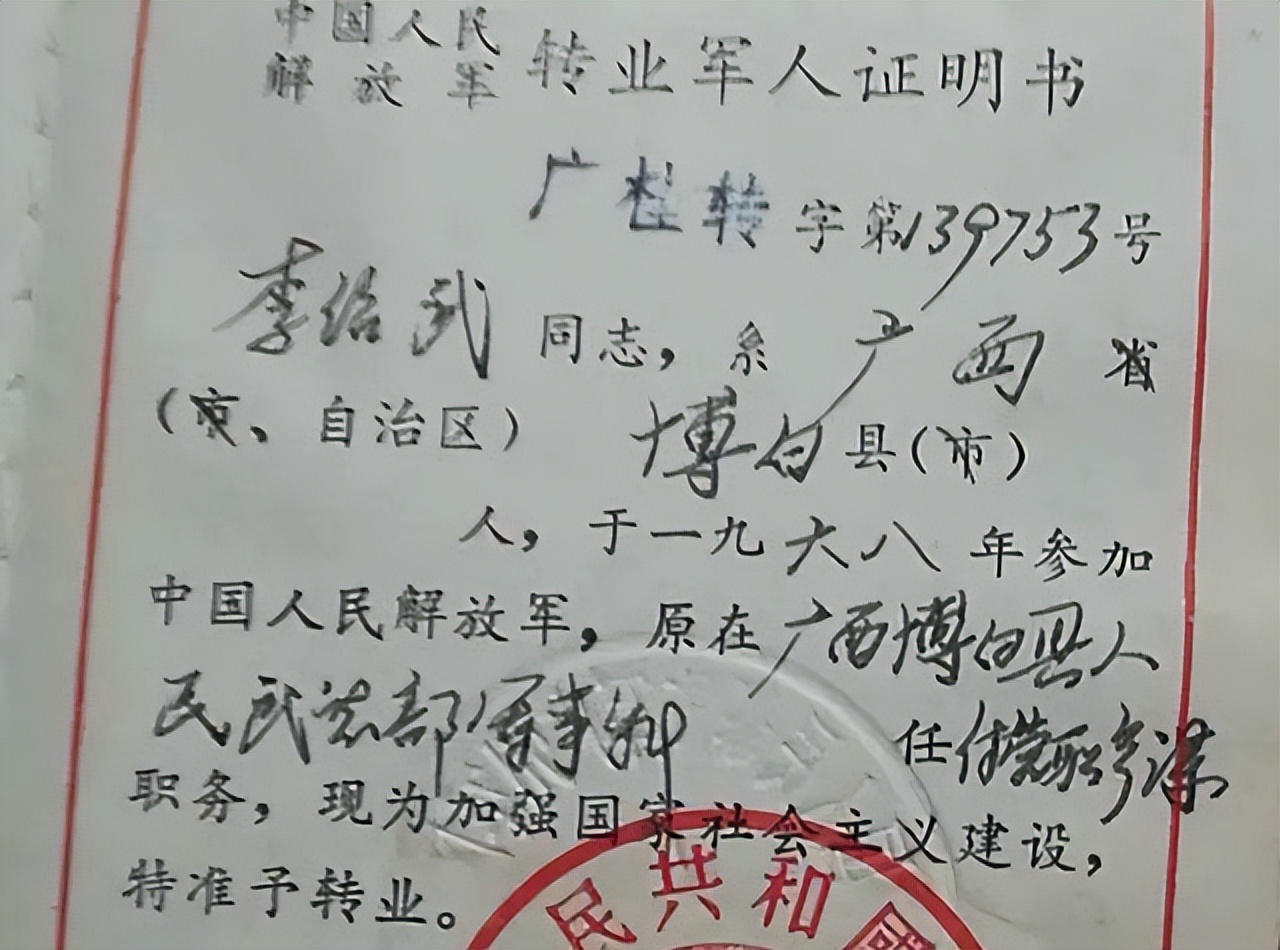 中国人民
解放军 转业军人证明书
广桂转字第139753号
李绍武同志，系广西省
（市、自治区）博白县（市）
人，于一九六八年参加
中国人民解放军，原在广西博白县人
民武装部军事科 任付营职参谋
职务，现为加强国家社会主义建设，
特准予转业。
民共和國